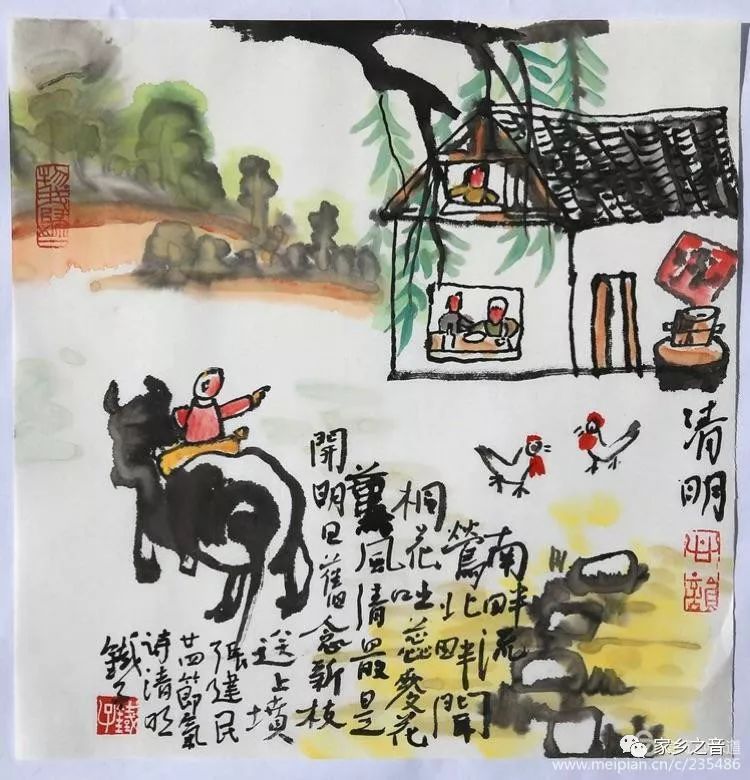 清明
南畔流
鶯北畔聞
桐花吐蕊麥花
薰風清最是
開明日舊念新枝
送上墳
張建民
廿四節氣
詩清明
鐵子
酒
家乡之音道
www.meipian.cn/c/235486